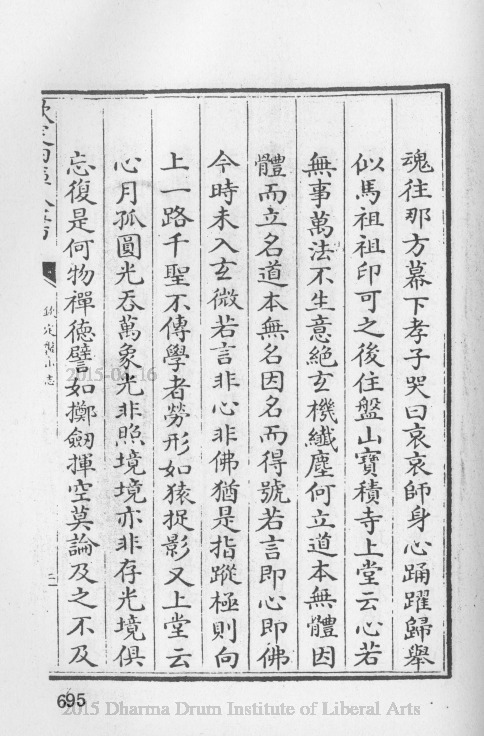 魂往那方幕下孝子哭曰哀哀師身心踊躍歸舉
似馬祖祖印可之後住盤山寶積寺上堂云心若
無事萬法不生意絕玄機纖塵何立道本無體因
體而立名道本無名因名而得號若言即心即佛
今時未入玄微若言非心非佛猶是指蹤極則向
上一路千聖不傳學者勞形如猿捉影又上堂云
心月孤圓光吞萬象光非照境境亦非存光境俱
忘復是何物禪德譬如擲劒揮空莫論及之不及
欽定盤山志
695
2015 Dharma Drum Institute of Liberal Arts